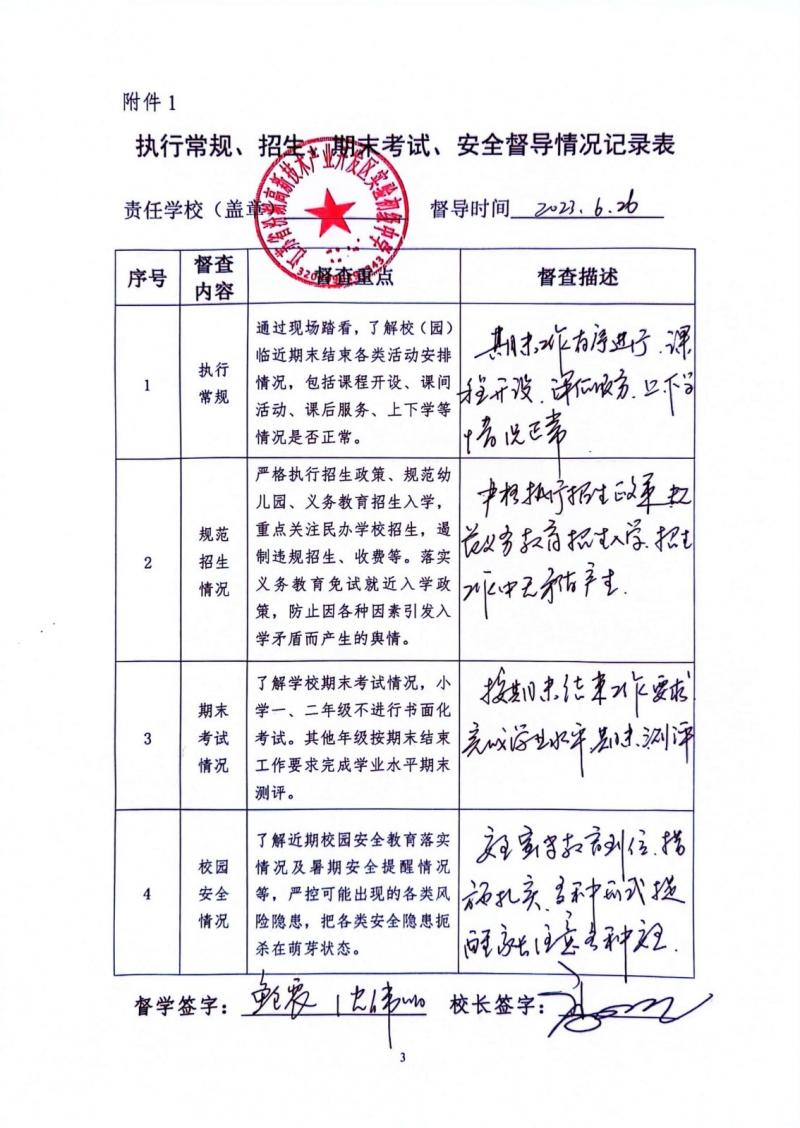 附件1
执行常规、招生、期末考试、安全督导情况记录表
责任学校（盖章）
督导时间 2023.6.26
序号
督查
内容
督查重点
督查描述
1
执行
常规
通过现场踏看，了解校（园）
临近期末结束各类活动安排
情况，包括课程开设、课间
活动、课后服务、上下学等
情况是否正常。
期末工作有序进行，课
程开设、课后服务、上下学
情况正常
2
规范
招生
情况
严格执行招生政策、规范幼
儿园、义务教育招生入学，
重点关注民办学校招生，遏
制违规招生、收费等。落实
义务教育免试就近入学政
策，防止因各种因素引发入
学矛盾而产生的舆情。
严格执行招生政策 规
范义务教育招生入学，招生
工作中无矛盾产生.
3
期末
考试
情况
了解学校期末考试情况，小
学一、二年级不进行书面化
考试。其他年级按期末结束
工作要求完成学业水平期末
测评。
按期末结束工作要求
完成学业水平期末测评
4
校园
安全
情况
了解近期校园安全教育落实
情况及暑期安全提醒情况
等，严控可能出现的各类风
险隐患，把各类安全隐患扼
杀在萌芽状态。
安全宣传教育到位，措
施扎实，各种形式提
醒家长注意各种安全.
督学签字：
校长签字：
3